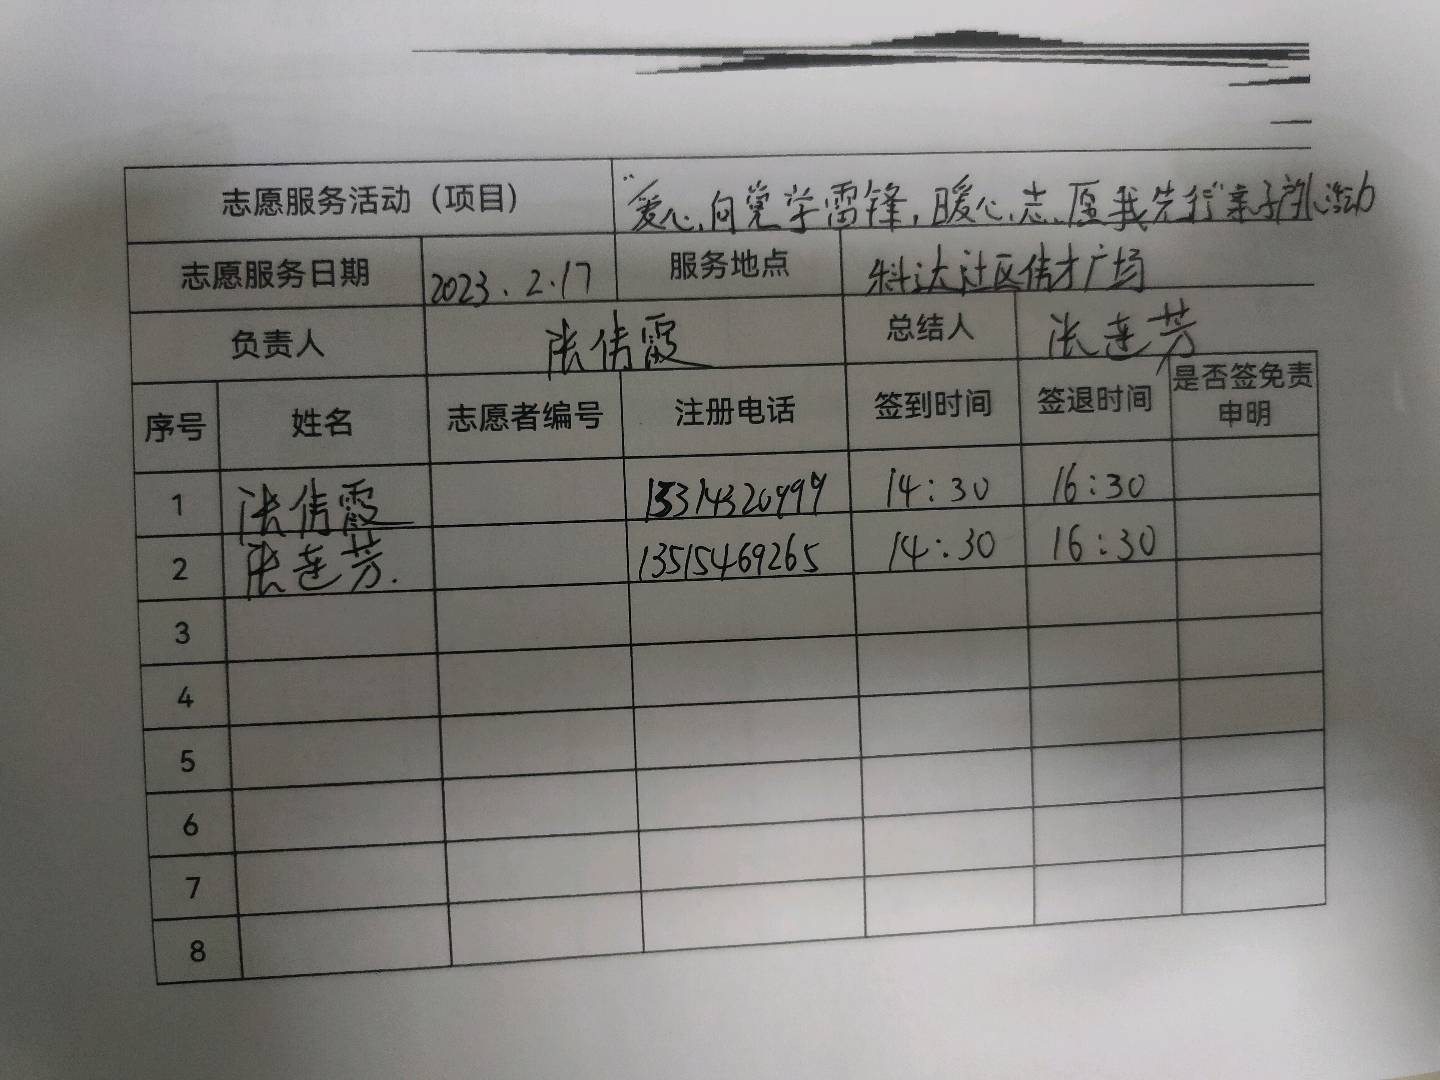 志愿服务活动（项目） “爱心向党学雷锋，暖心志愿我先行”亲子 活动
志愿服务日期 2023.2.17 服务地点 科达社区伟才广场
负责人 张倩霞 总结人 张莲芳
序号 姓名 志愿者编号 注册电话 签到时间 签退时间 是否签免责
申明
1 张倩霞 14:30 16:30
2 张莲芳. 13515469265 14:30 16:30
3
4
5
6
7
8